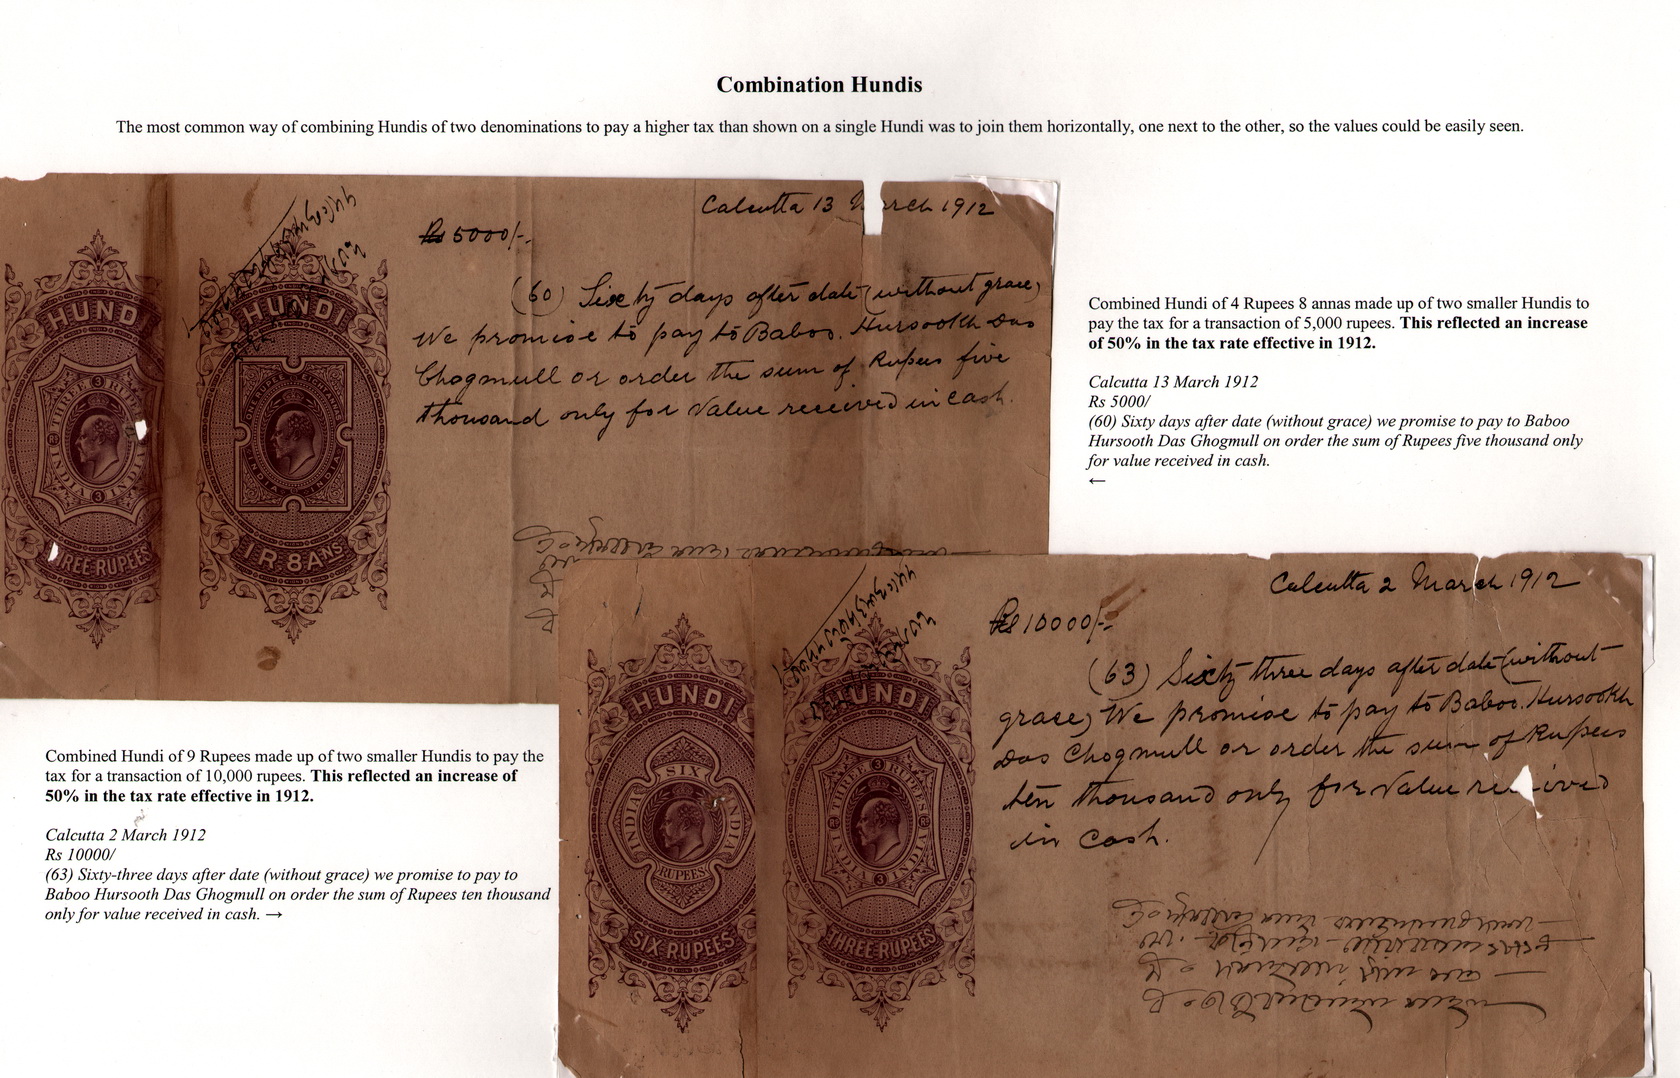 Combination Hundis
The most common way of combining Hundis of two denominations to pay a higher tax than shown on a single Hundi was to join them horizontally, one next to the other, so the values could be easily seen.
Calcutta 13 March 1912
Rs 5000/-
(60) Sixty days after date (without grace)
We promise to pay to Baboo. Hursookh Das
Chogmull or order the sum of Rupees five
thousand only for value received in cash.
HUND
THREE RUPE
INDIA INDI
3
3
HREE RUPEES
HUNDI
ONE RUPEE EIGHT ANNAS
INDIA
1 R. 8 ANS
Combined Hundi of 4 Rupees 8 annas made up of two smaller Hundis to
pay the tax for a transaction of 5,000 rupees. This reflected an increase
of 50% in the tax rate effective in 1912.
Calcutta 13 March 1912
Rs 5000/
(60) Sixty days after date (without grace) we promise to pay to Baboo
Hursooth Das Ghogmull on order the sum of Rupees five thousand only
for value received in cash.
←
Combined Hundi of 9 Rupees made up of two smaller Hundis to pay the
tax for a transaction of 10,000 rupees. This reflected an increase of
50% in the tax rate effective in 1912.
Calcutta 2 March 1912
Rs 10000/
(63) Sixty-three days after date (without grace) we promise to pay to
Baboo Hursooth Das Ghogmull on order the sum of Rupees ten thousand
only for value received in cash. →
Calcutta 2 March 1912
Rs 10000/-
(63) Sixty three days after date (without
grace) We promise to pay to Baboo. Hursookh
Das Chogmull or order the sum of Rupees
ten thousand only for value received
in cash.
HUNDI
SIX
INDIA INDIA
RUPEES
SIX RUPEES
HUNDI
THREE 3 RUPEES
INDIA 3 INDIA
THREE RUPEES